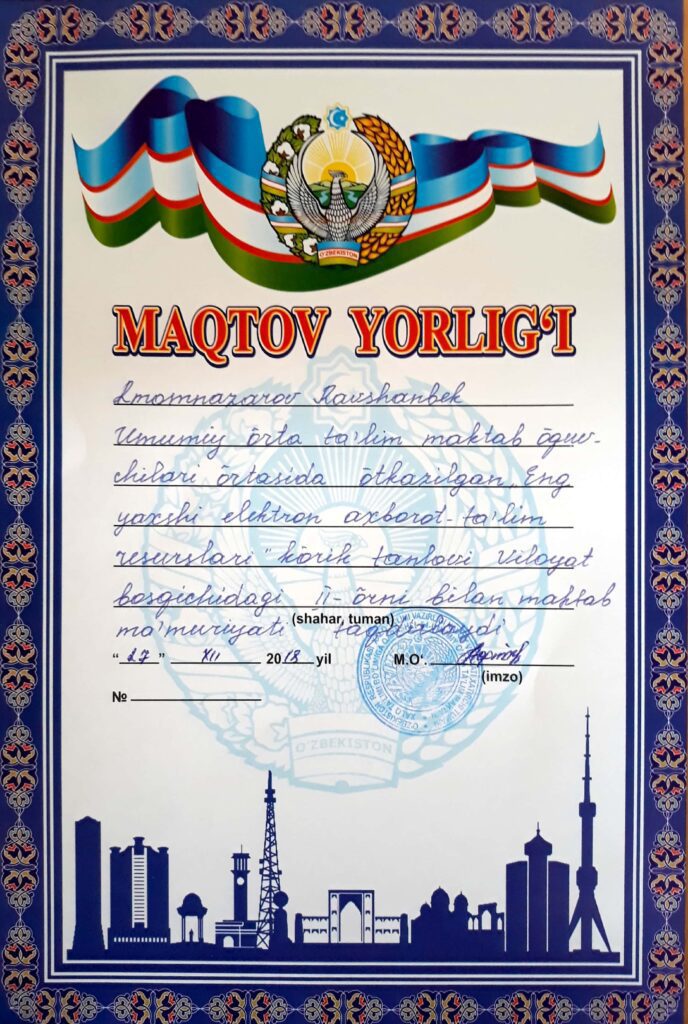 O'ZBEKISTON
MAQTOV YORLIG‘I
Imomnazarov Ravshanbek
Umumiy õrta ta'lim maktab õquv-
chilari õrtasida õtkazilgan „Eng
yaxshi elektron axborot-ta'lim
resurslari" kõrik tanlovi Viloyat
bosqichidagi II-õrni bilan maktab
(shahar, tuman)
ma'muriyati taqdirlaydi
“27” XII 2018 yil M.O‘.
(imzo)
№
O'ZBEKISTON